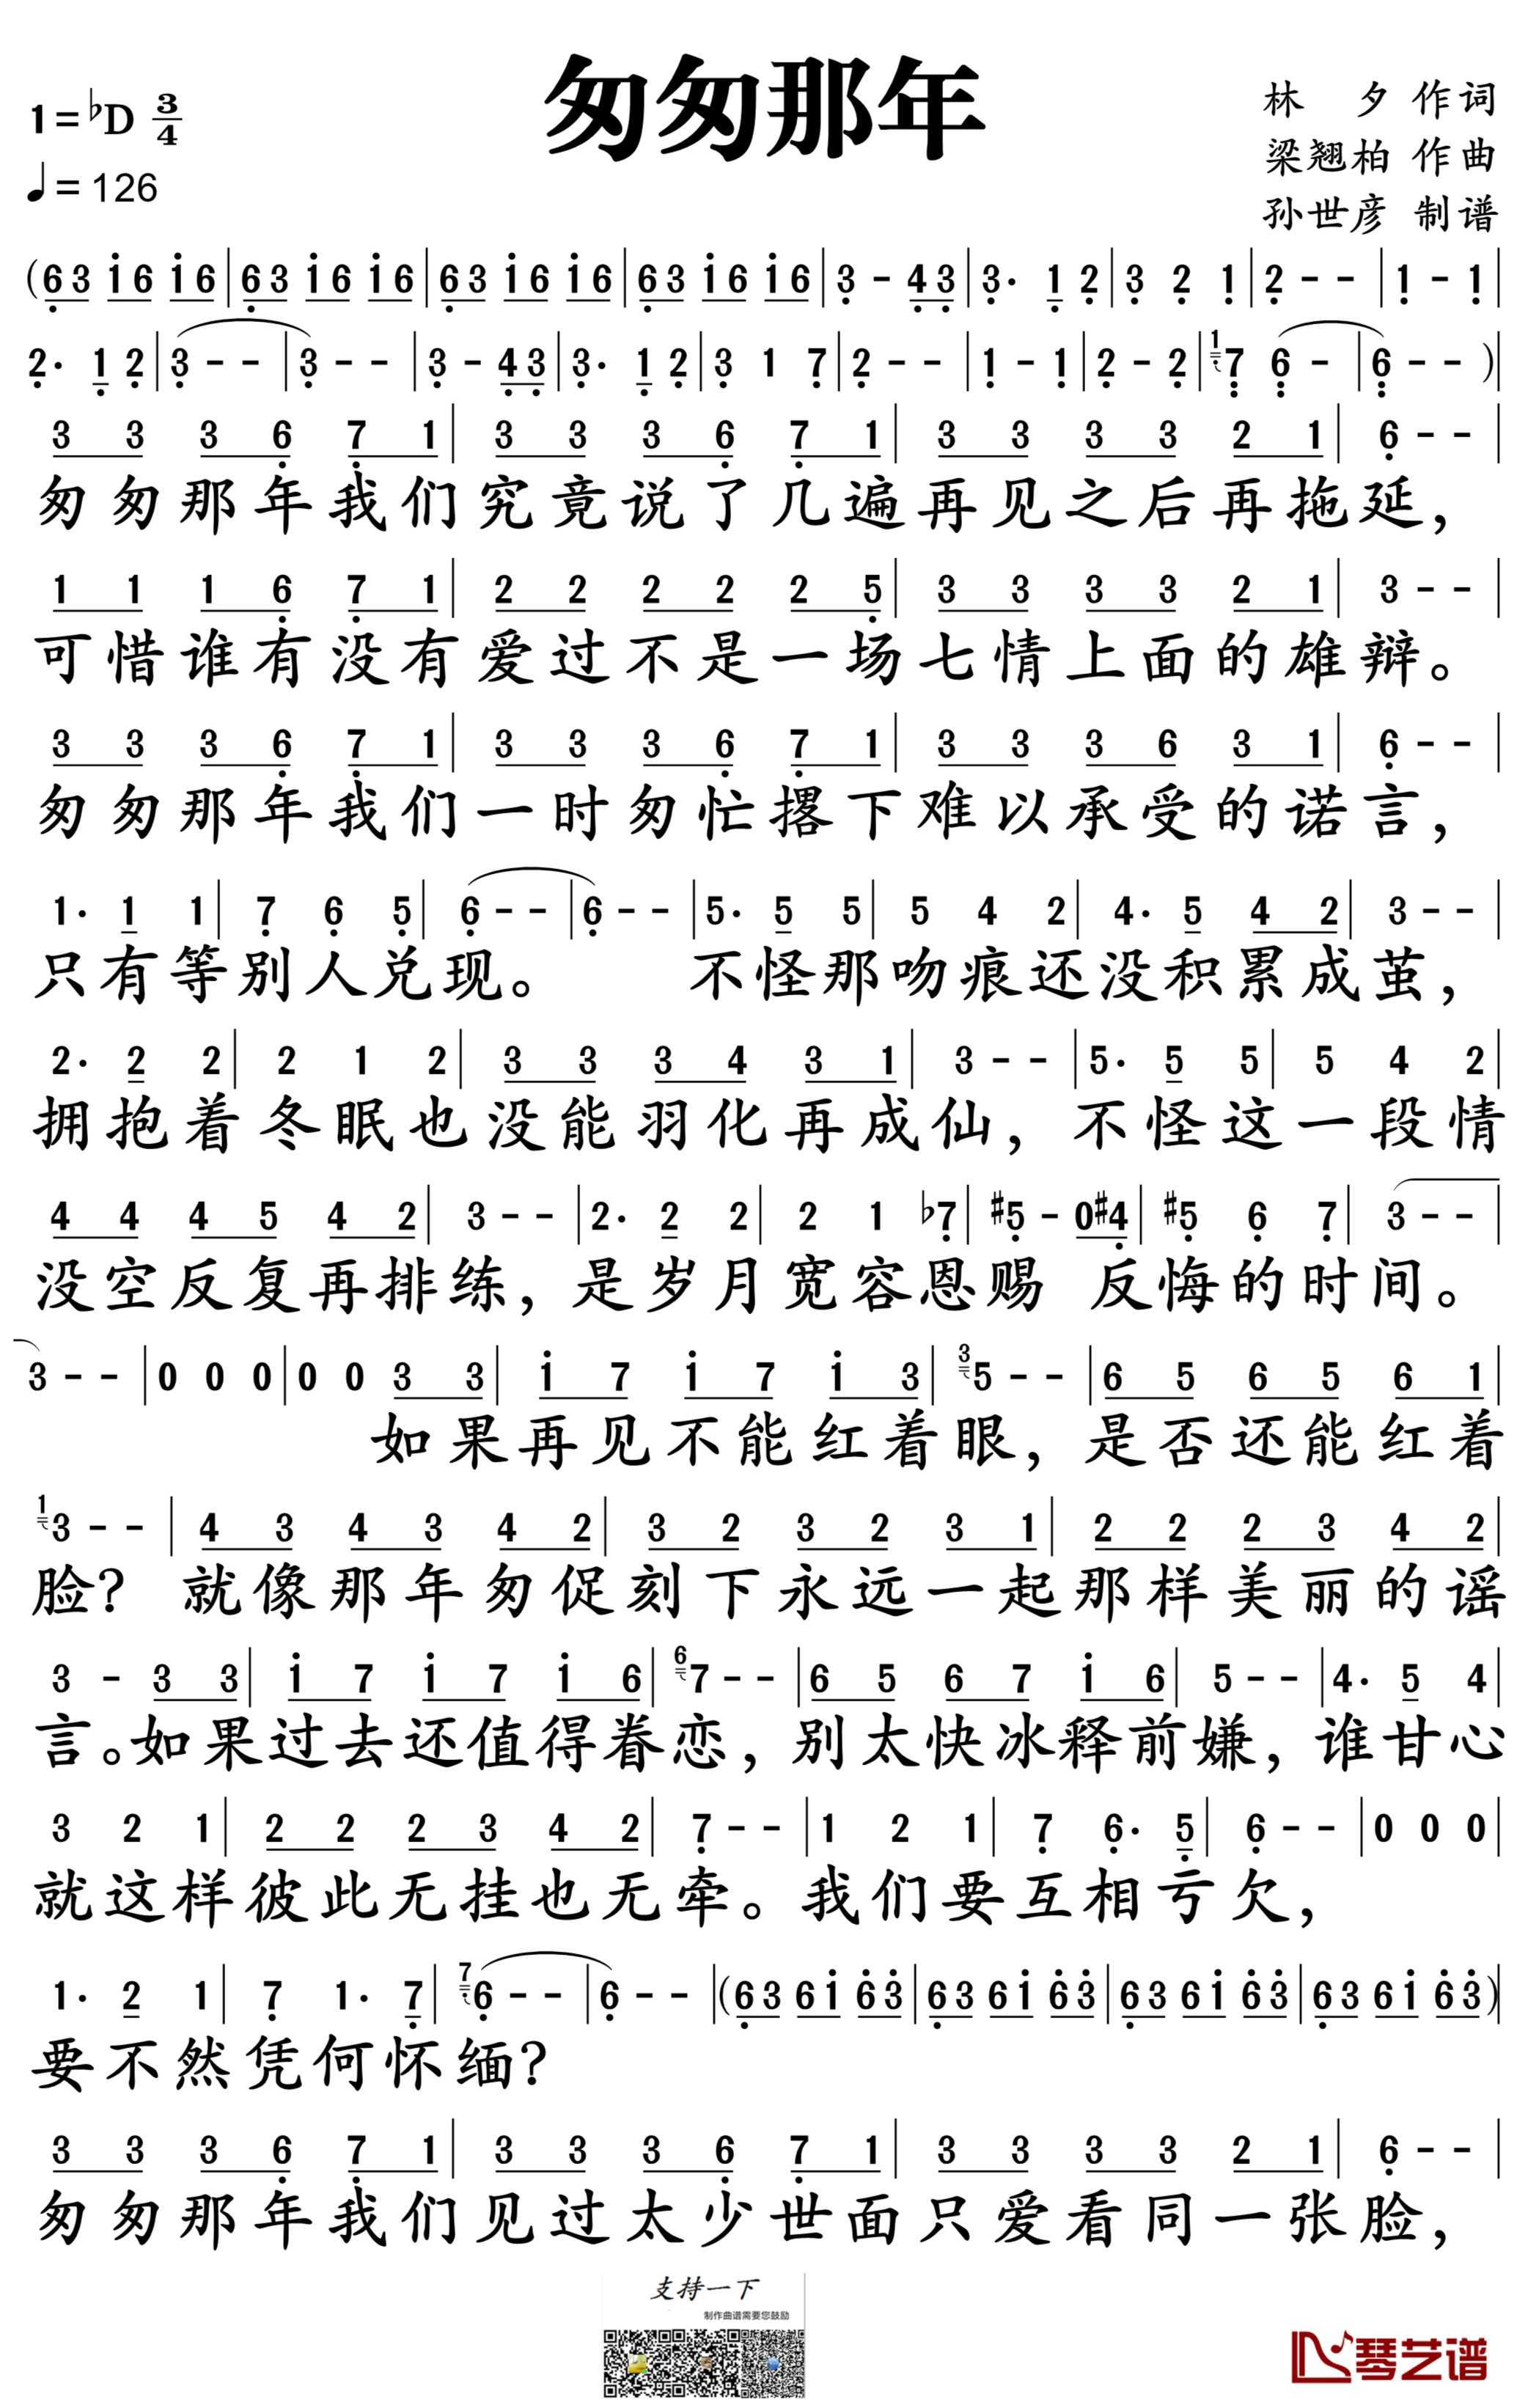 匆匆那年
1=♭D 3/4
♩=126
林 夕 作词
梁翘柏 作曲
孙世彦 制谱
(6̣3 1̇6 1̇6|6̣3 1̇6 1̇6|6̣3 1̇6 1̇6|6̣3 1̇6 1̇6|3̣ - 4̣3̣|3̣· 1̣ 2̣|3̣ 2̣ 1̣|2̣ - -|1̣ - 1̣|
2̣· 1̣ 2̣|3̣ - -|3̣ - -|3̣ - 4̣3̣|3̣· 1̣ 2̣|3̣ 1 7̣|2̣ - -|1̣ - 1̣|2̣ - 2̣|1 7̣ 6̣ -|6̣ - -)|
3 3 3 6̣ 7̣ 1|3 3 3 6̣ 7̣ 1|3 3 3 3 2 1|6̣ - -|
匆匆那年我们究竟说了几遍再见之后再拖延，
1 1 1 6̣ 7̣ 1|2 2 2 2 2 5̣|3 3 3 3 2 1|3 - -|
可惜谁有没有爱过不是一场七情上面的雄辩。
3 3 3 6̣ 7̣ 1|3 3 3 6̣ 7̣ 1|3 3 3 6 3 1|6̣ - -|
匆匆那年我们一时匆忙撂下难以承受的诺言，
1· 1 1|7̣ 6̣ 5̣|6̣ - -|6̣ - -|5· 5 5|5 4 2|4· 5 4 2|3 - -|
只有等别人兑现。 不怪那吻痕还没积累成茧，
2· 2 2|2 1 2|3 3 3 4 3 1|3 - -|5· 5 5|5 4 2|
拥抱着冬眠也没能羽化再成仙，不怪这一段情
4 4 4 5 4 2|3 - -|2· 2 2|2 1 ♭7̣|♯5̣ - 0♯4̣|♯5̣ 6̣ 7̣|3 - -|
没空反复再排练，是岁月宽容恩赐 反悔的时间。
3 - -|0 0 0|0 0 3 3|1̇ 7 1̇ 7 1̇ 3|3 5 - -|6 5 6 5 6 1|
如果再见不能红着眼，是否还能红着
1 3 - -|4 3 4 3 4 2|3 2 3 2 3 1|2 2 2 3 4 2|
脸？ 就像那年匆促刻下永远一起那样美丽的谣
3 - 3 3|1̇ 7 1̇ 7 1̇ 6|6 7 - -|6 5 6 7 1̇ 6|5 - -|4· 5 4|
言。如果过去还值得眷恋，别太快冰释前嫌，谁甘心
3 2 1|2 2 2 3 4 2|7̣ - -|1 2 1|7̣ 6̣· 5̣|6̣ - -|0 0 0|
就这样彼此无挂也无牵。我们要互相亏欠，
1· 2 1|7̣ 1· 7̣|7 6̣ - -|6̣ - -|(6̣3 61̇ 6̇3̇|6̣3 61̇ 6̇3̇|6̣3 61̇ 6̇3̇|6̣3 61̇ 6̇3̇)|
要不然凭何怀缅？
3 3 3 6̣ 7̣ 1|3 3 3 6̣ 7̣ 1|3 3 3 3 2 1|6̣ - -|
匆匆那年我们见过太少世面只爱看同一张脸，
支持一下
制作曲谱需要您鼓励
琴艺谱